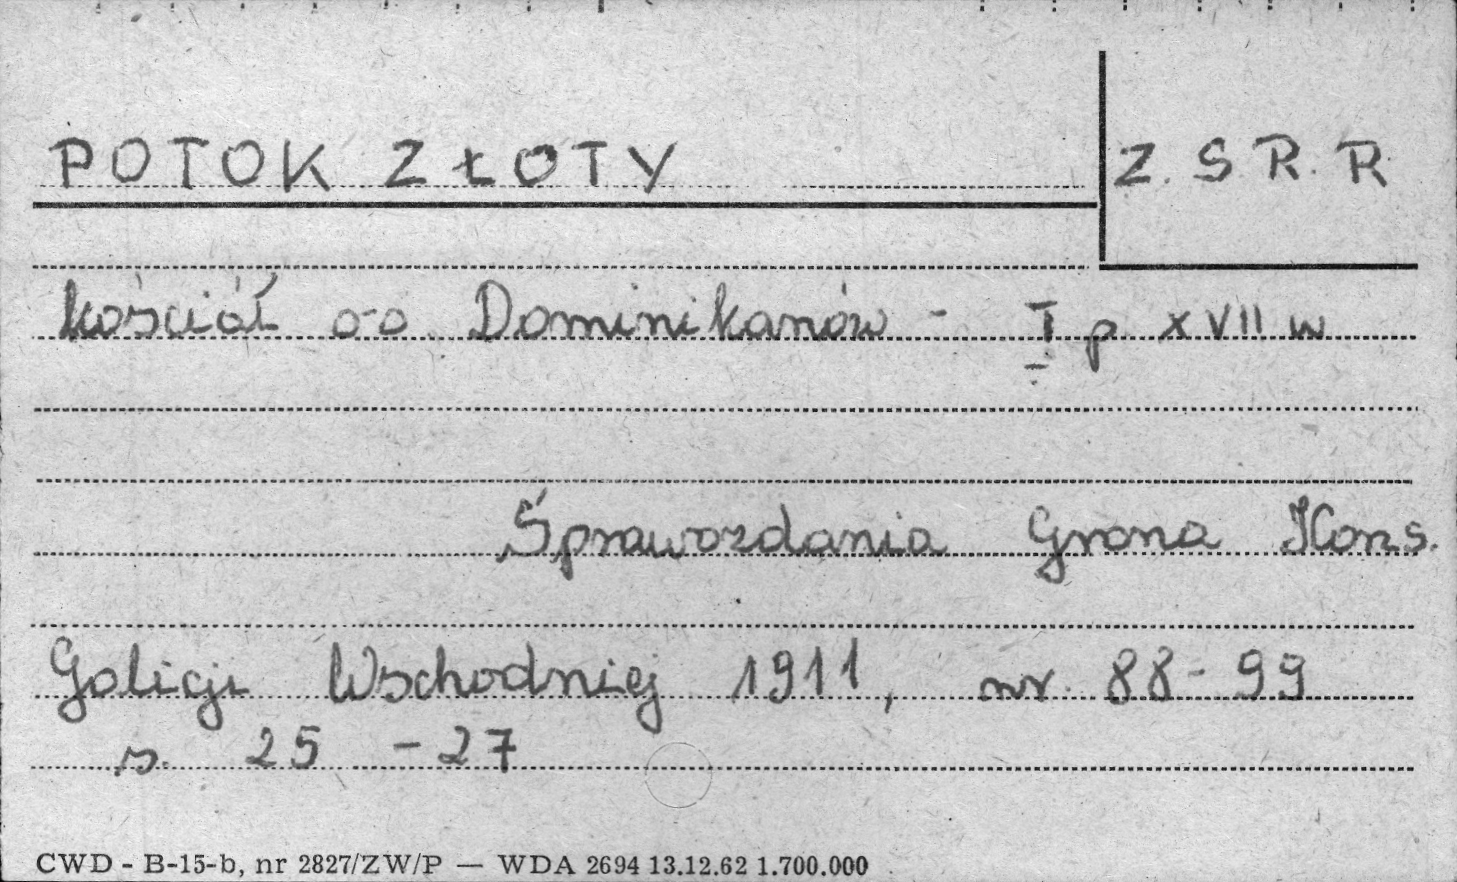 POTOK ZŁOTY
Z. S. R. R
kościół o-o Dominikanów - I p XVII w
Sprawozdania Grona Kons.
Galicji Wschodniej 1911, nr. 88-99
s. 25 - 27
CWD - B-15-b, nr 2827/ZW/P — WDA 2694 13.12.62 1.700.000